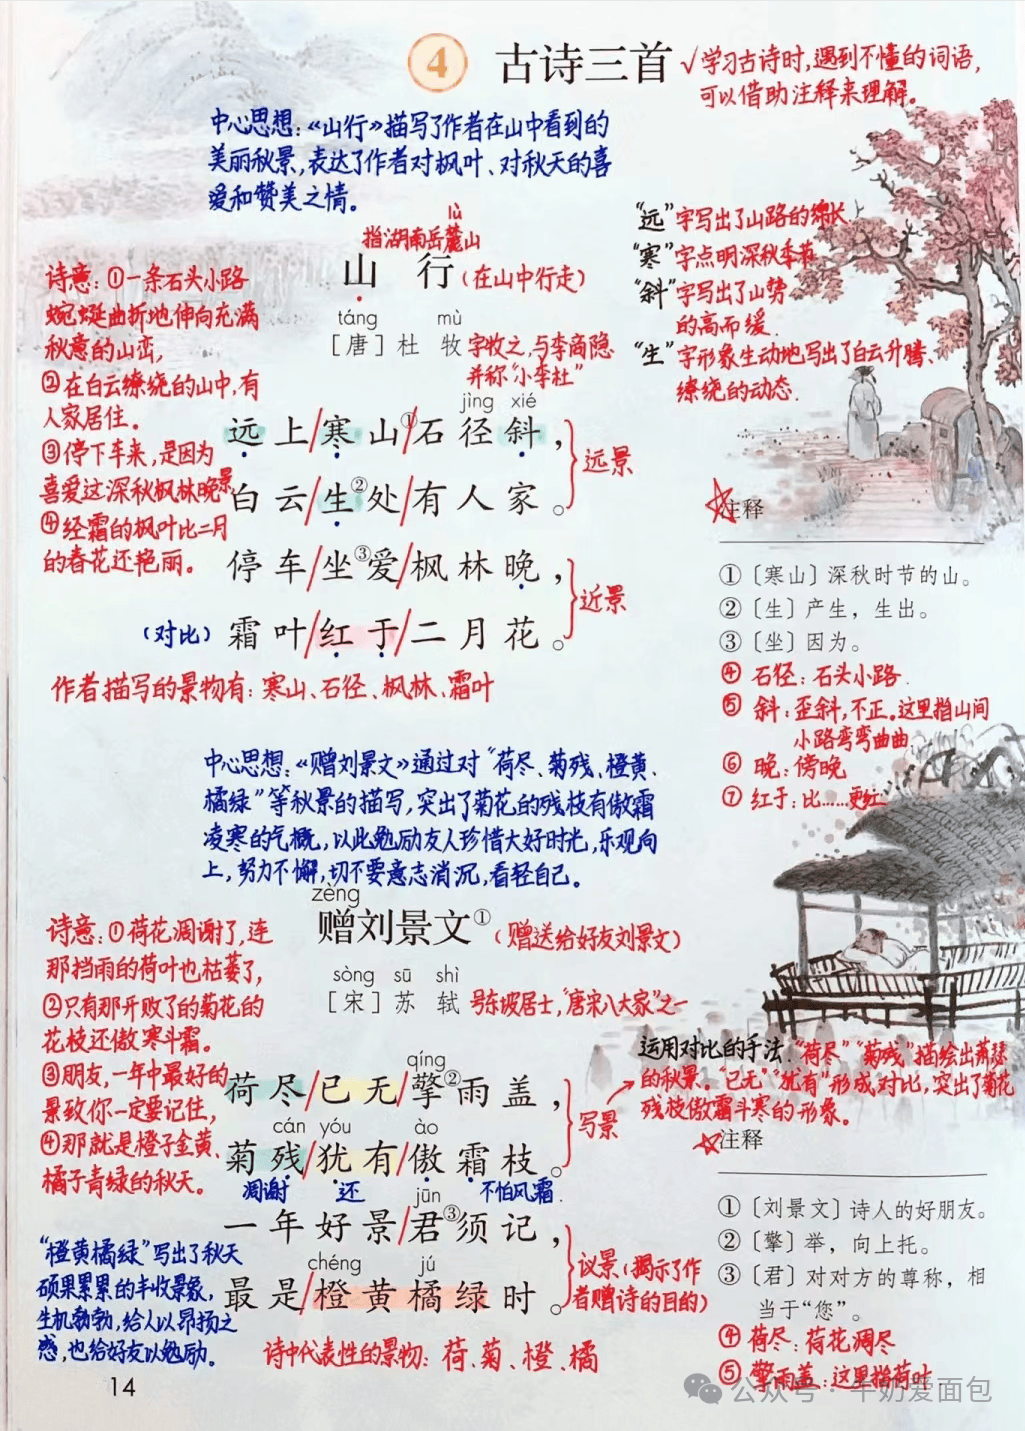 4 古诗三首
√学习古诗时,遇到不懂的词语,
可以借助注释来理解。
中心思想:《山行》描写了作者在山中看到的
美丽秋景,表达了作者对枫叶、对秋天的喜
爱和赞美之情。
“远”字写出了山路的绵长.
“寒”字点明深秋季节
“斜”字写出了山势
的高而缓.
“生”字形象生动地写出了白云升腾、
缭绕的动态.
lù
指湖南岳麓山
山 行(在山中行走)
táng mù
[唐]杜 牧 字牧之,与李商隐
并称“小李杜”
诗意:①一条石头小路
蜿蜒曲折地伸向充满
秋意的山峦,
②在白云缭绕的山中,有
人家居住。
③停下车来,是因为
喜爱这深秋枫林晚景
④经霜的枫叶比二月
的春花还艳丽。
jìng xié
远上/寒山①/石径斜,
白云/生②处/有人家。
远景
停车/坐③爱/枫林晚,
(对比)霜叶/红于/二月花。
近景
作者描写的景物有:寒山、石径、枫林、霜叶
注释
①〔寒山〕深秋时节的山。
②〔生〕产生,生出。
③〔坐〕因为。
④石径:石头小路.
⑤斜:歪斜,不正。这里指山间
小路弯弯曲曲
⑥晚:傍晚
⑦红于:比……更红
中心思想:《赠刘景文》通过对“荷尽、菊残、橙黄、
橘绿”等秋景的描写,突出了菊花的残枝有傲霜
凌寒的气概,以此勉励友人珍惜大好时光,乐观向
上,努力不懈,切不要意志消沉,看轻自己。
zèng
赠刘景文①(赠送给好友刘景文)
sòng sū shì
[宋]苏 轼 号东坡居士,“唐宋八大家”之一
诗意:①荷花凋谢了,连
那挡雨的荷叶也枯萎了,
②只有那开败了的菊花的
花枝还傲寒斗霜。
③朋友,一年中最好的
景致你一定要记住,
④那就是橙子金黄、
橘子青绿的秋天。
运用对比的手法:“荷尽”“菊残”描绘出萧瑟
的秋景。“已无”“犹有”形成对比,突出了菊花
残枝傲霜斗寒的形象。
qíng
荷尽/已无/擎②雨盖,
cán yóu ào
菊残/犹有/傲霜枝。
凋谢 还 不怕风霜.
写景
jūn
一年好景/君③须记,
chéng jú
最是/橙黄橘绿时。
议景(揭示了作
者赠诗的目的)
“橙黄橘绿”写出了秋天
硕果累累的丰收景象,
生机勃勃,给人以昂扬之
感,也给好友以勉励。
诗中代表性的景物:荷、菊、橙、橘
注释
①〔刘景文〕诗人的好朋友。
②〔擎〕举,向上托。
③〔君〕对对方的尊称,相
当于“您”。
④荷尽:荷花凋尽
⑤擎雨盖:这里指荷叶
14
公众号·牛奶爱面包